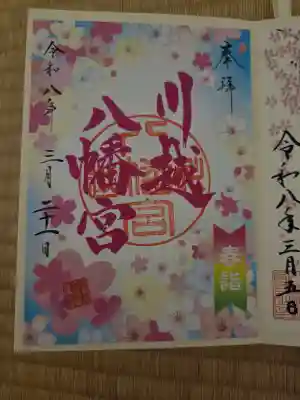 奉拝
川越
八幡宮
令和八年三月二十一日
春詣
令和八年三月五日